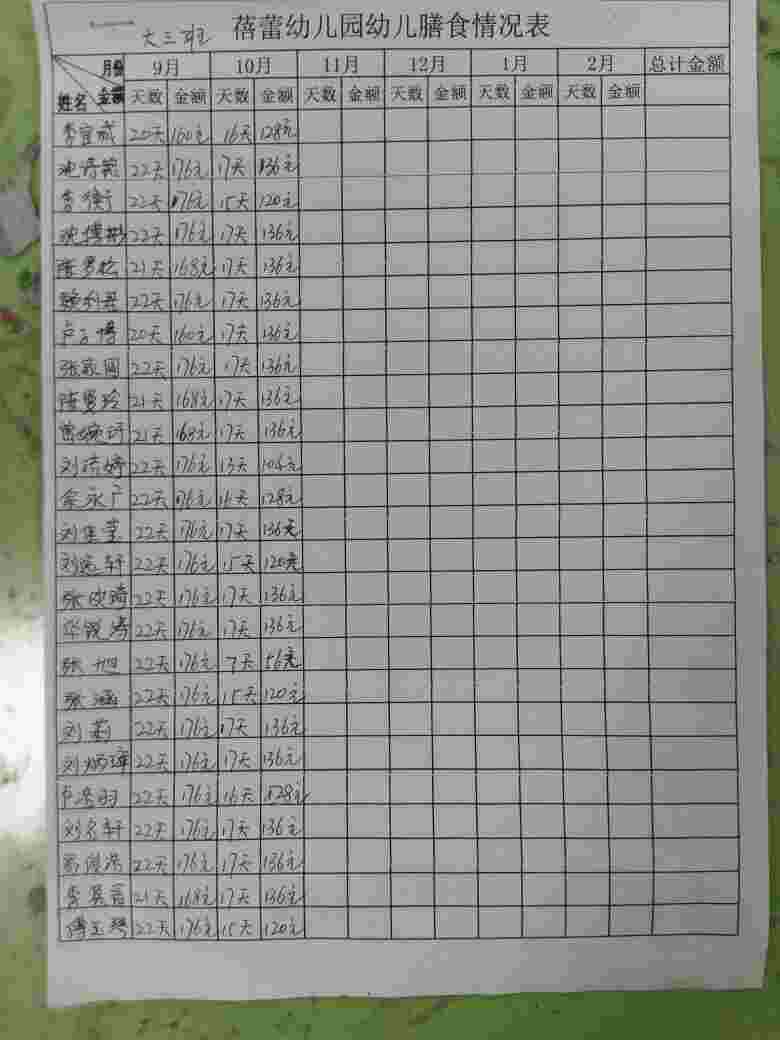 大三班 蓓蕾幼儿园幼儿膳食情况表
月份 9月 10月 11月 12月 1月 2月 总计金额
姓名 金额 天数 金额 天数 金额 天数 金额 天数 金额 天数 金额 天数 金额
李宜威 20天 160元 16天 128元
沈诗 22天 176元 17天 136元
李衡 22天 176元 15天 120元
沈博 22天 176元 17天 136元
陈梦 21天 168元 17天 136元
22天 176元 17天 136元
卢子博 20天 160元 17天 136元
张家国 22天 176元 17天 136元
陈曼玲 21天 168元 17天 136元
婉玡 21天 168元 17天 136元
刘诗婷 22天 176元 13天 104元
余永广 22天 176元 16天 128元
刘佳莹 22天 176元 17天 136元
刘逸轩 22天 176元 15天 120元
张俊琦 22天 176元 17天 136元
华锐涛 22天 176元 17天 136元
张旭 22天 176元 7天 56元
张涵 22天 176元 15天 120元
刘莉 22天 176元 17天 136元
刘炳 22天 176元 17天 136元
羽 22天 176元 16天 128元
刘名轩 22天 176元 17天 136元
俊浩 22天 176元 17天 136元
李 21天 168元 17天 136元
傅玉琴 22天 176元 15天 120元